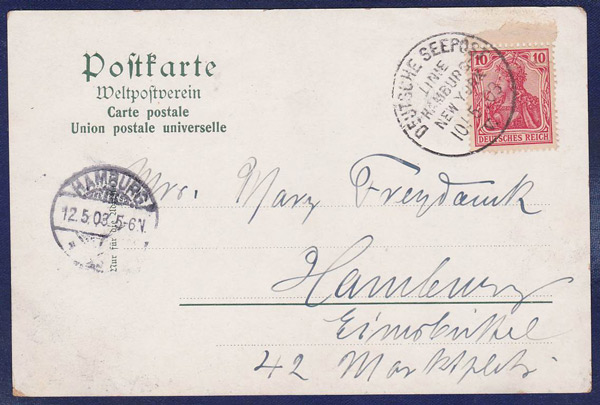 Postkarte
Weltpostverein
Carte postale
Union postale universelle
DEUTSCHE SEEPOST
LINIE
HAMBURG
NEW YORK
10 10
DEUTSCHES REICH
HAMBURG
12.5.03. 5-6 N.
Nur für
Mrs. Mary Freydanck
Hamburg
Eimsbüttel
42 Marktplatz